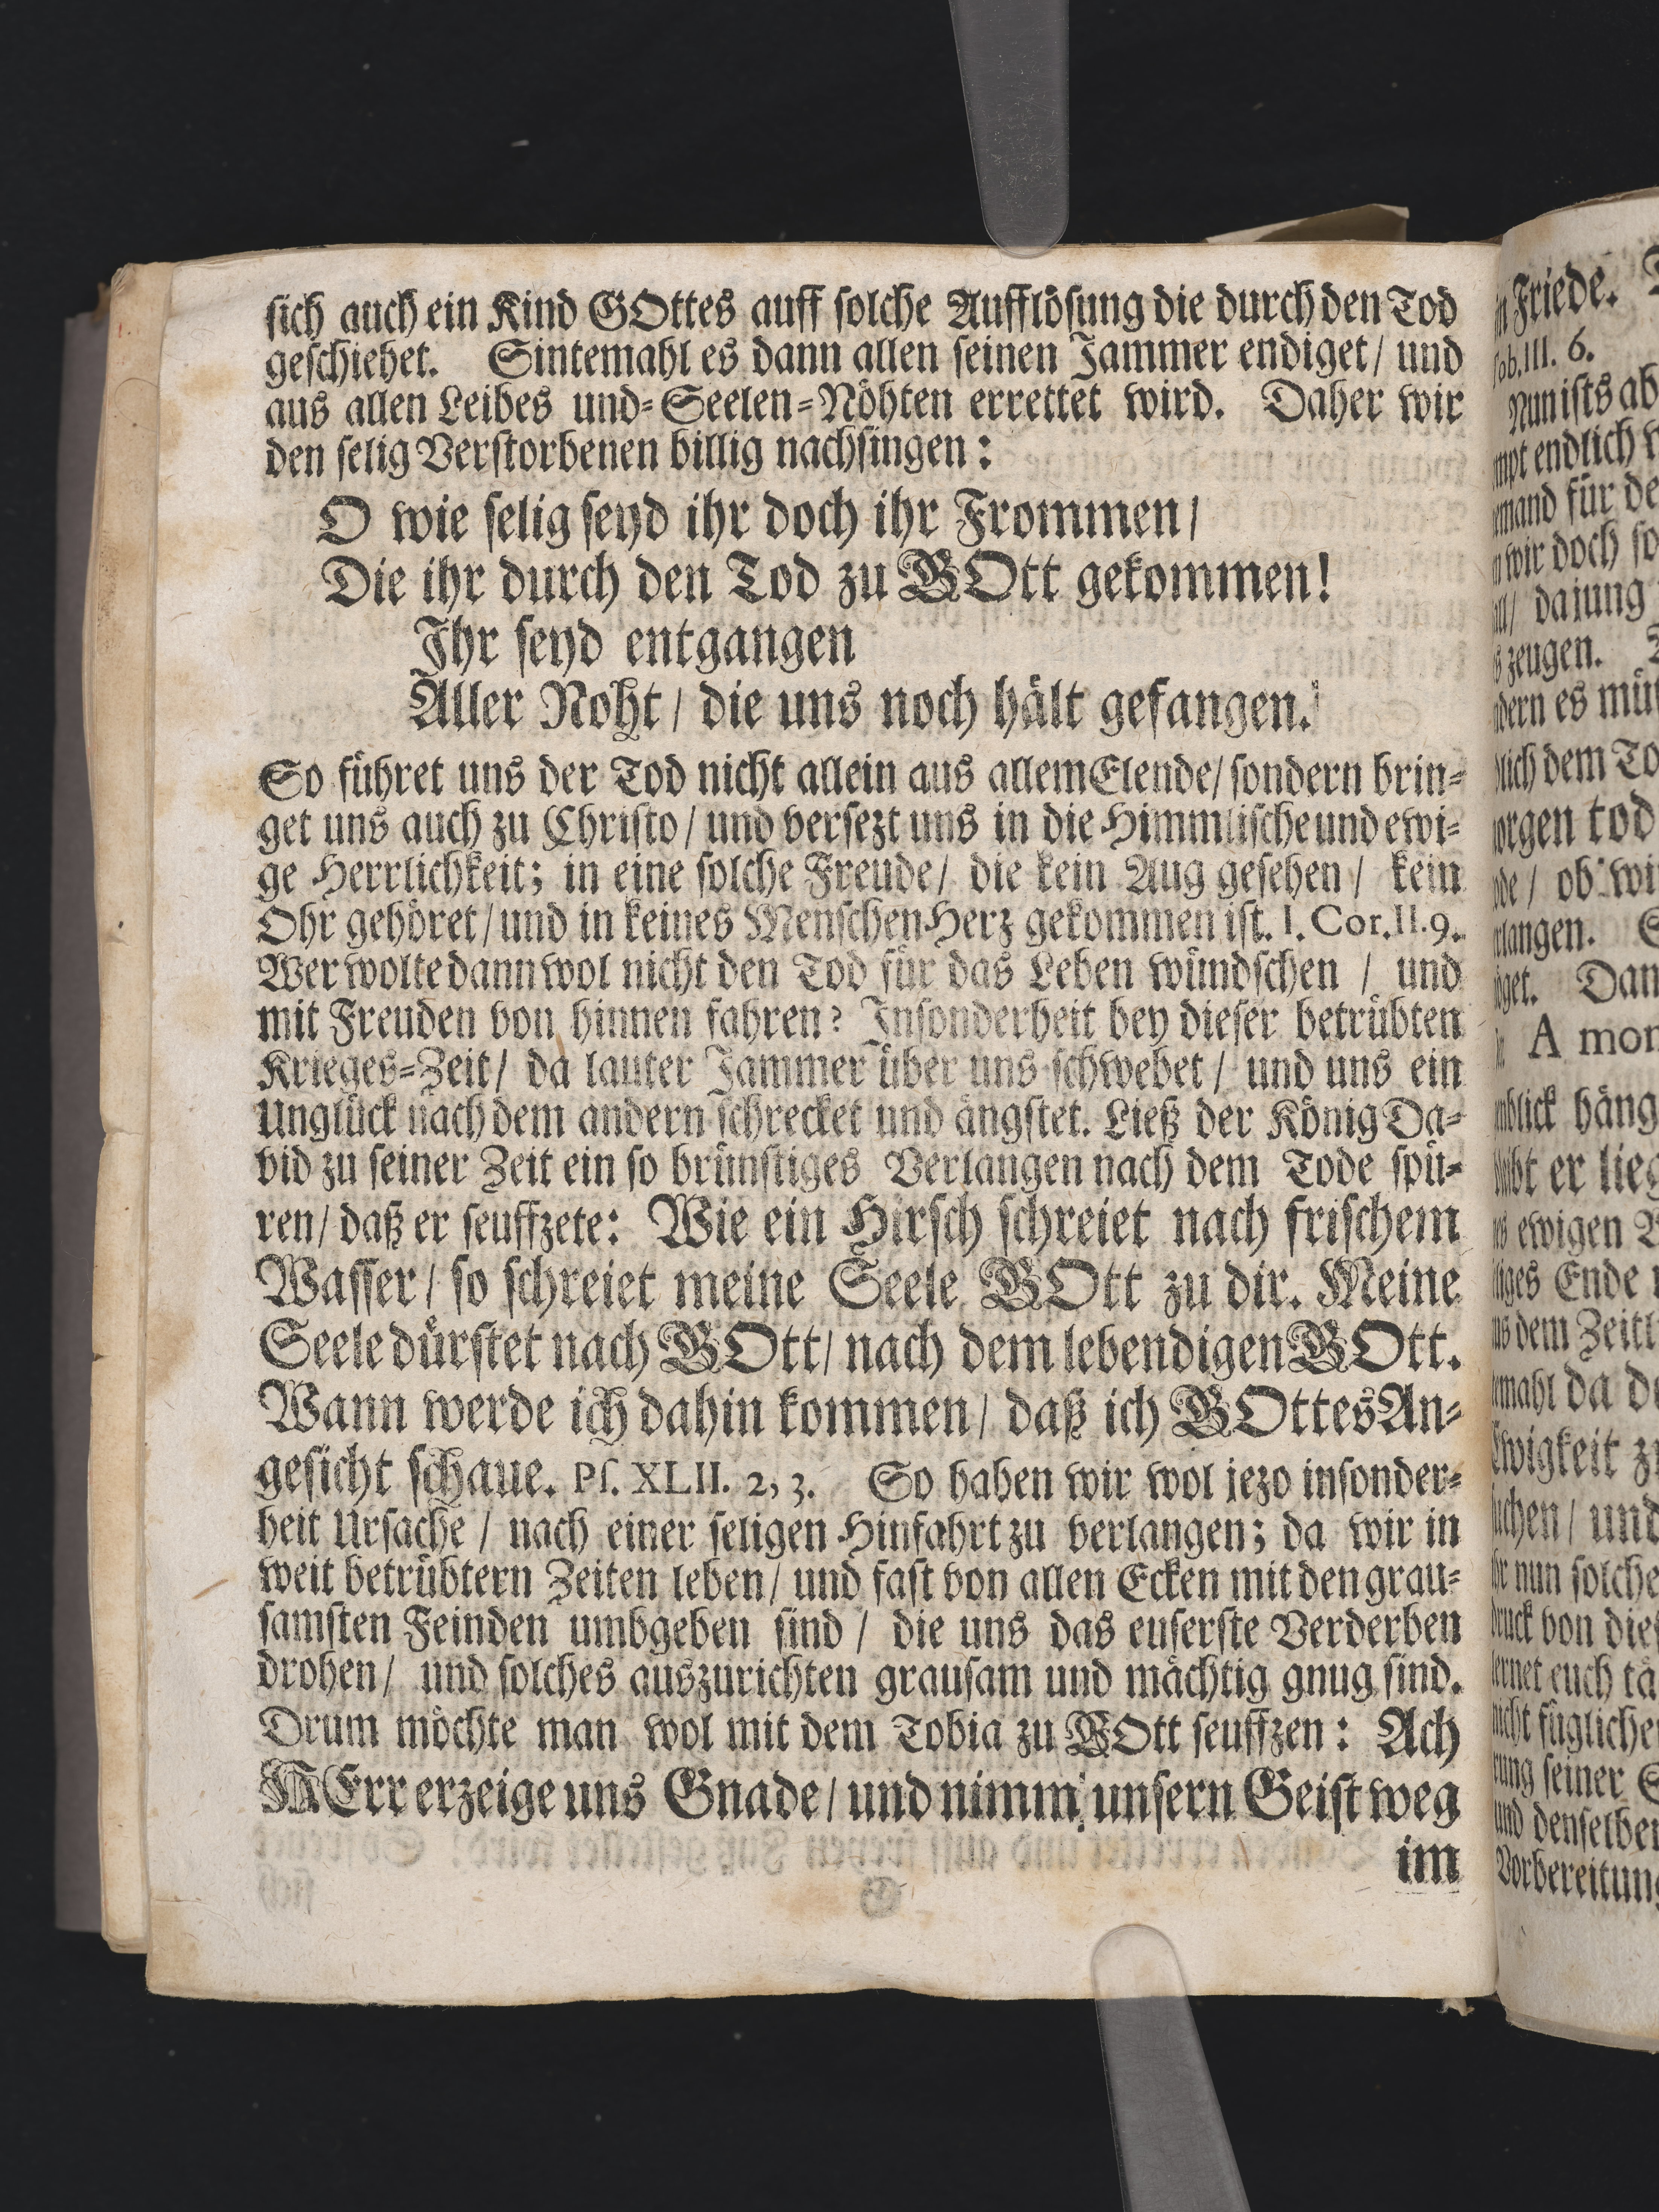 sich auch ein Kind GOttes auff solche Aufflösung die durch den Tod
geschiehet. Sintemahl es dann allen seinen Jammer endiget / und
aus allen Leibes und-Seelen-Nöhten errettet wird. Daher wir
den selig Verstorbenen billig nachsingen:
O wie selig seyd ihr doch ihr Frommen /
Die ihr durch den Tod zu GOtt gekommen!
Ihr seyd entgangen
Aller Noht / die uns noch hält gefangen.
So führet uns der Tod nicht allein aus allem Elende / sondern brin-
get uns auch zu Christo / und versezt uns in die Himmlische und ewi-
ge Herrlichkeit; in eine solche Freude / die kein Aug gesehen / kein
Ohr gehöret / und in keines Menschen Herz gekommen ist. I. Cor. II. 9.
Wer wolte dann wol nicht den Tod für das Leben wündschen / und
mit Freuden von hinnen fahren? Insonderheit bey dieser betrübten
Krieges-Zeit / da lauter Jammer über uns schwebet / und uns ein
Unglück nach dem andern schrecket und ängstet. Ließ der König Da-
vid zu seiner Zeit ein so brünstiges Verlangen nach dem Tode spü-
ren / daß er seuffzete: Wie ein Hirsch schreiet nach frischem
Wasser / so schreiet meine Seele GOtt zu dir. Meine
Seele dürstet nach GOtt / nach dem lebendigen GOtt.
Wann werde ich dahin kommen / daß ich GOttes An-
gesicht schaue. Ps. XLII. 2, 3. So haben wir wol jezo insonder-
heit Ursache / nach einer seligen Hinfahrt zu verlangen; da wir in
weit betrübtern Zeiten leben / und fast von allen Ecken mit den grau-
samsten Feinden umbgeben sind / die uns das euserste Verderben
drohen / und solches auszurichten grausam und mächtig gnug sind.
Drum möchte man wol mit dem Tobia zu GOtt seuffzen: Ach
HErr erzeige uns Gnade / und nimm unsern Geist weg
im
Friede.
III. 6.
Nun ists
endlich
für
wir doch
da jung
zeugen.
es
dem
tod
ob
Dan
A
er
ewigen
Ende
dem
da
zu
und
nun solche
von
euch
seiner
Vorbereitung